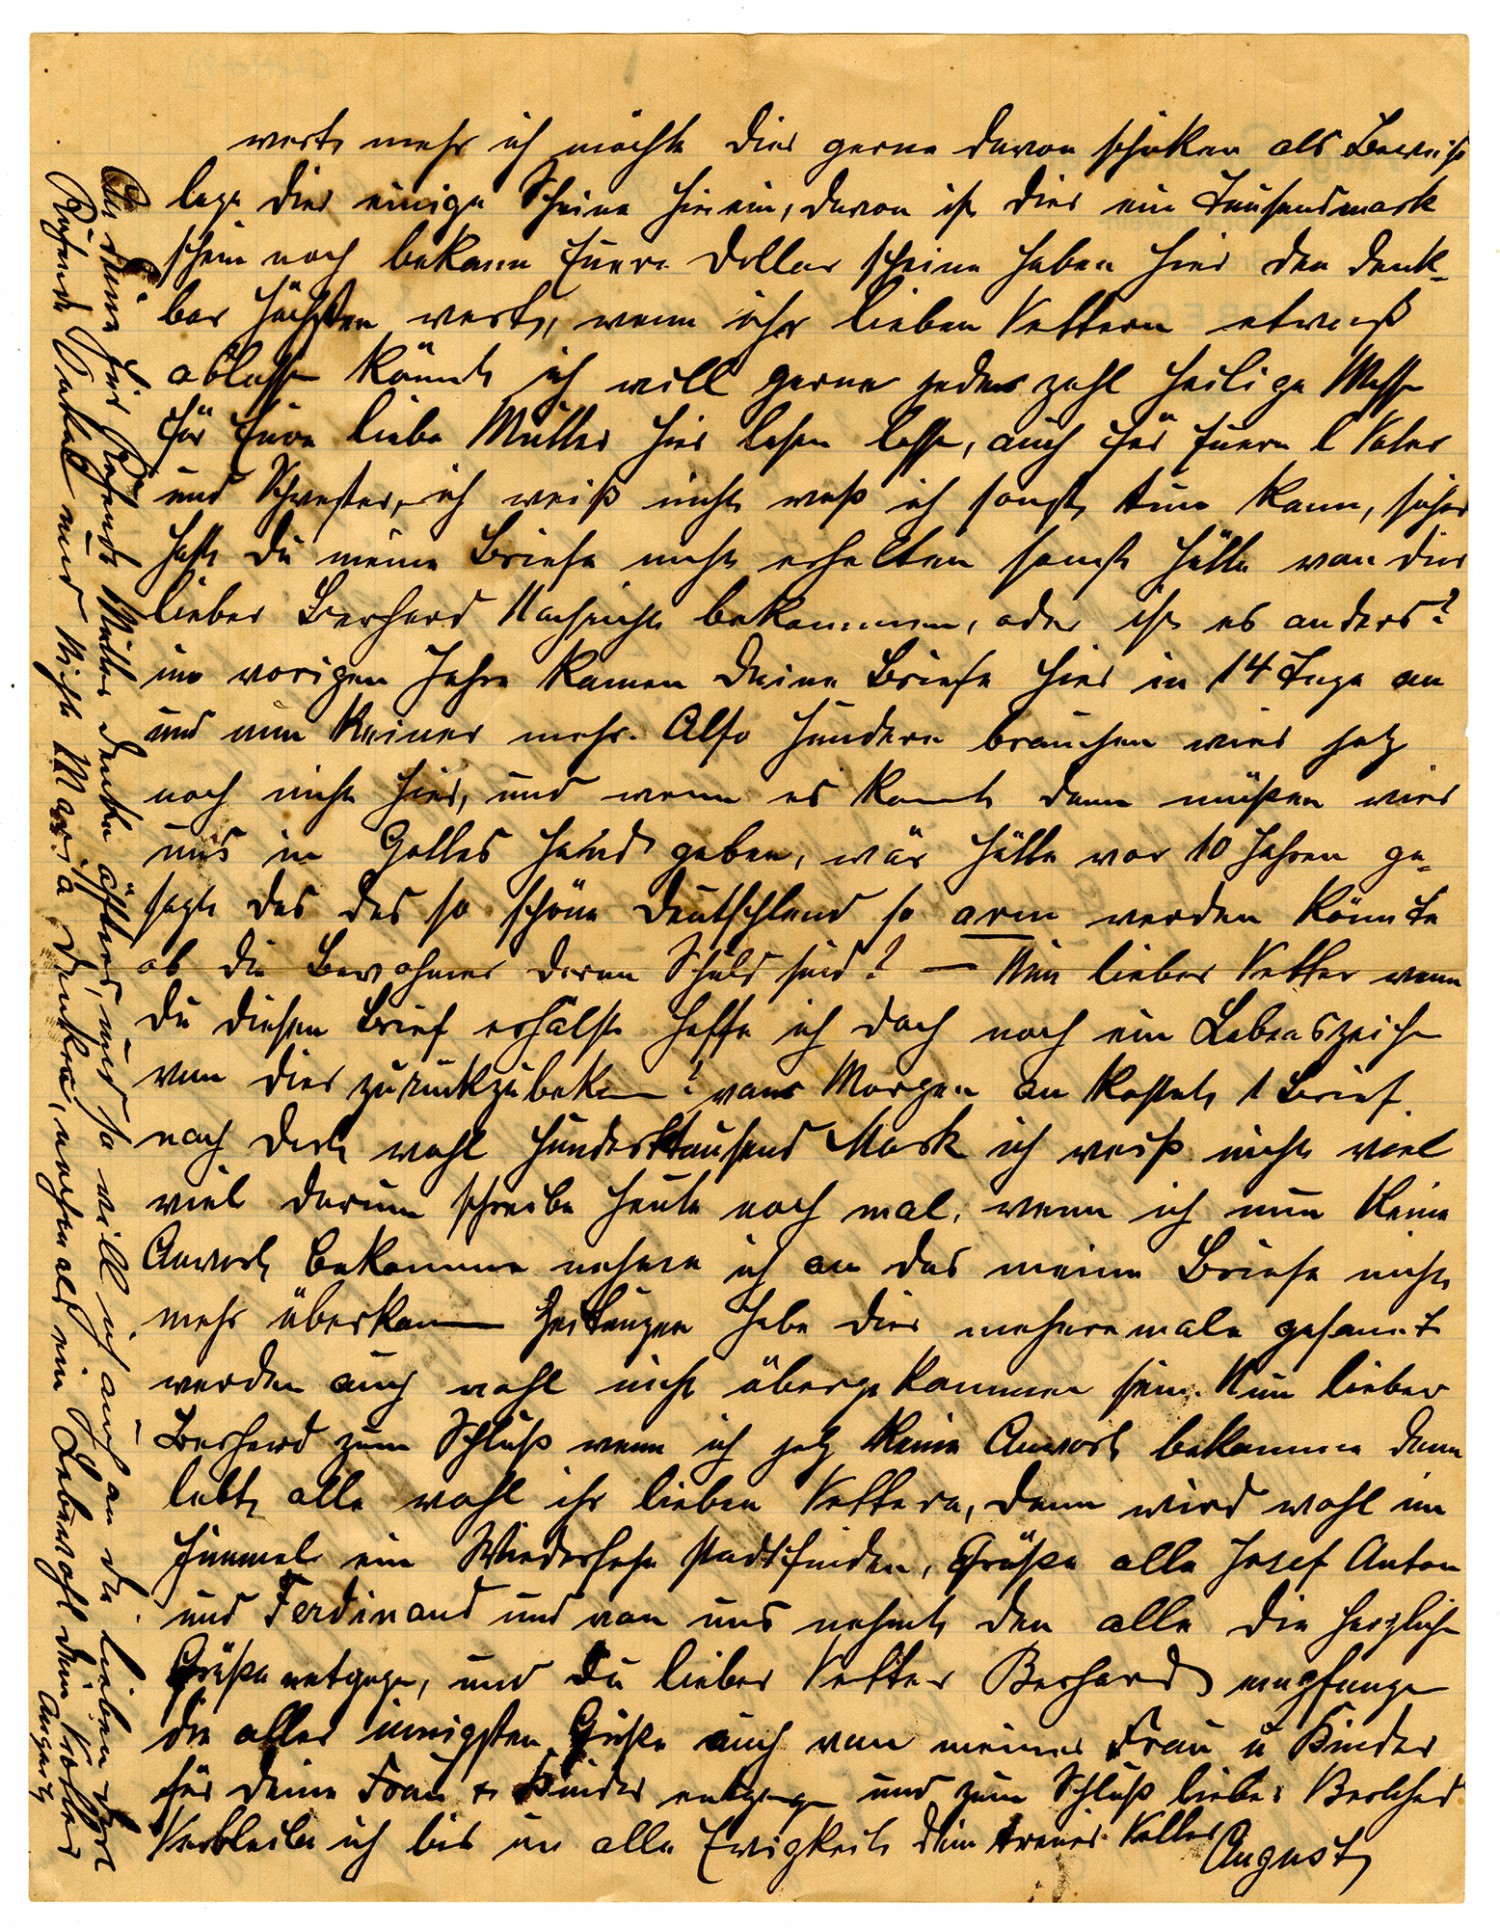 wert mehr ich möchte dier gerne davon schiken als Beweiß
lege dier einige Scheine hierein, davon ist dier ein Tausendmark
schein noch bekann Euere Dollar scheine haben hier den denk-
bar höchsten wert, wenn ihr lieben Vettern etwaß
ablasse könnt ich will gerne jeder zahl heilige Messe
für Eure liebe Mutter hier lesen lasse, auch für Euern l Vater
und Schwester, ich weiß nicht waß ich sonst tun kann, sicher
hast du meine Briefe nicht erhalten sonst hätte von dier
lieber Berhard Nachricht bekommen, oder ist es anders?
im vorigen Jahre kamen deine Briefe hier in 14 Tage an
und nun keiner mehr. Also hungern brauchen wier jetz
noch nicht hier, und wenn es komt dann müßen wier
uns in Gottes Hand geben, wär hätte vor 10 Jahren ge-
sagt das das so schöne Deutschland so arm werden könnte
ob die Bewohner deren Schuld sind? — Nun lieber Vetter wenn
du diesen Brief erhälst hoffe ich doch noch ein Lebenszeiche
von dier zurückzubekom? vom Morgen an kostet 1 Brief
nach dort wohl Hunderttausend Mark ich weiß nicht viel
viel darum schreibe heute noch mal, wenn ich nun keine
Anwort bekomme nehme ich an das meine Briefe nicht
mehr überkommen Zeitungen habe dier mehrere male gesannt
werden auch wohl nicht übergekommen sein. Nun lieber
Berhard zum Schluß wenn ich jetz keine Anwort bekomme dann
lebt alle wohl ihr lieben Vettern, dann wird wohl im
Himmel ein Wiedersehe stadtfinden, Grüße alle Josef Anton
und Ferdinand und von uns nehmt den alle die herzliche
Grüße entgege, und du lieber Vetter Berhard empfange
die aller innigsten Grüße auch von meiner Frau u Kinder
für deine Frau & Kinder entgege und zum Schluß lieber Berhard
Verbleibe ich bis in alle Ewigkeit dein treuer Vetter August
An deine hier Ruhende Mutter denke öfters, und so will ich auch an die lieben dort
Ruhende Onkel und Nichte Maria denken, nochmals ein Lebewohl dein Vetter
August